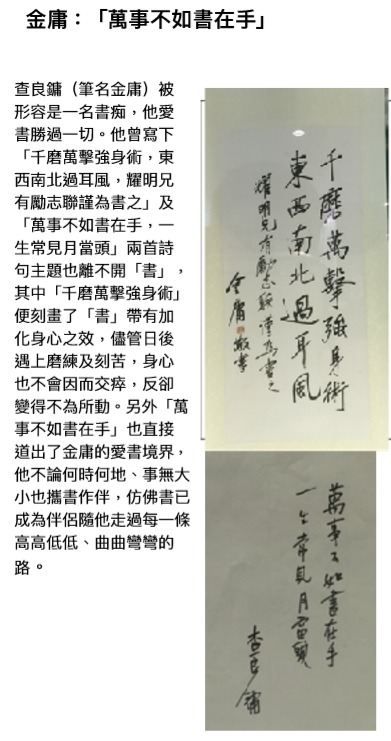 金庸：「萬事不如書在手」
查良鏞（筆名金庸）被
形容是一名書痴，他愛
書勝過一切。他曾寫下
「千磨萬擊強身術，東
西南北過耳風，耀明兄
有勵志聯謹為書之」及
「萬事不如書在手，一
生常見月當頭」兩首詩
句主題也離不開「書」，
其中「千磨萬擊強身術」
便刻畫了「書」帶有加
化身心之效，儘管日後
遇上磨練及刻苦，身心
也不會因而交瘁，反卻
變得不為所動。另外「萬
事不如書在手」也直接
道出了金庸的愛書境界，
他不論何時何地、事無大
小也攜書作伴，仿佛書已
成為伴侶隨他走過每一條
高高低低、曲曲彎彎的
路。
千磨萬擊強身術
東西南北過耳風
耀明兄有勵志聯謹為書之
金庸敬書
萬事不如書在手
一生常見月當頭
查良鏞